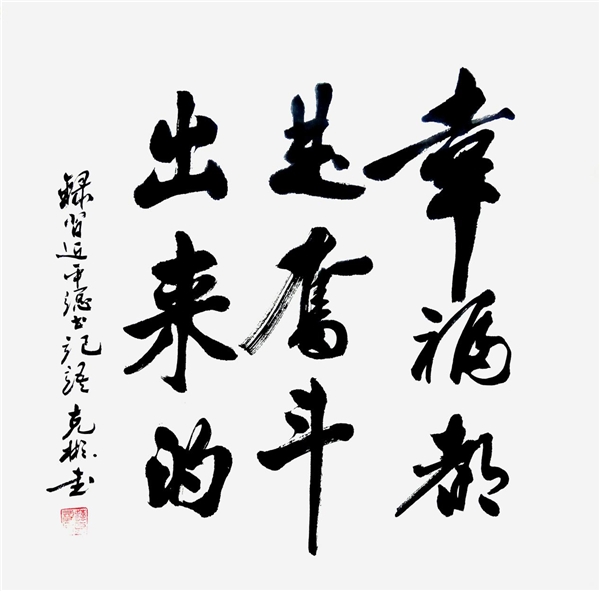 幸福都
是奋斗
出来的
録习近平总书记语 克彬书